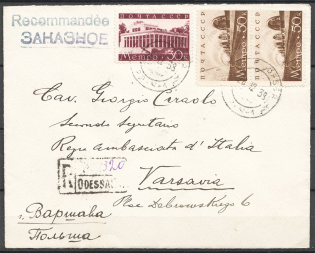 Recommandée
ЗАКАЗНОЕ
ПОЧТА СССР
Метро 30к
ПОЧТА СССР
Метро 50
ПОЧТА СССР
Метро 50
Cav. Giorgio Ciraolo
Secondo Segretario
Regia ambasciata d'Italia
R 320
ODESSA
Varsavia
Plac Dabrowskiego 6
г. Варшава
Польша